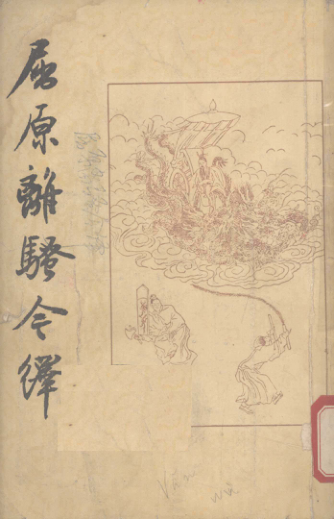 屈原離騷今繹